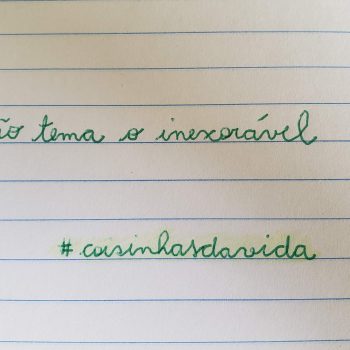 ão tema o inexorável
#coisinhasdavida